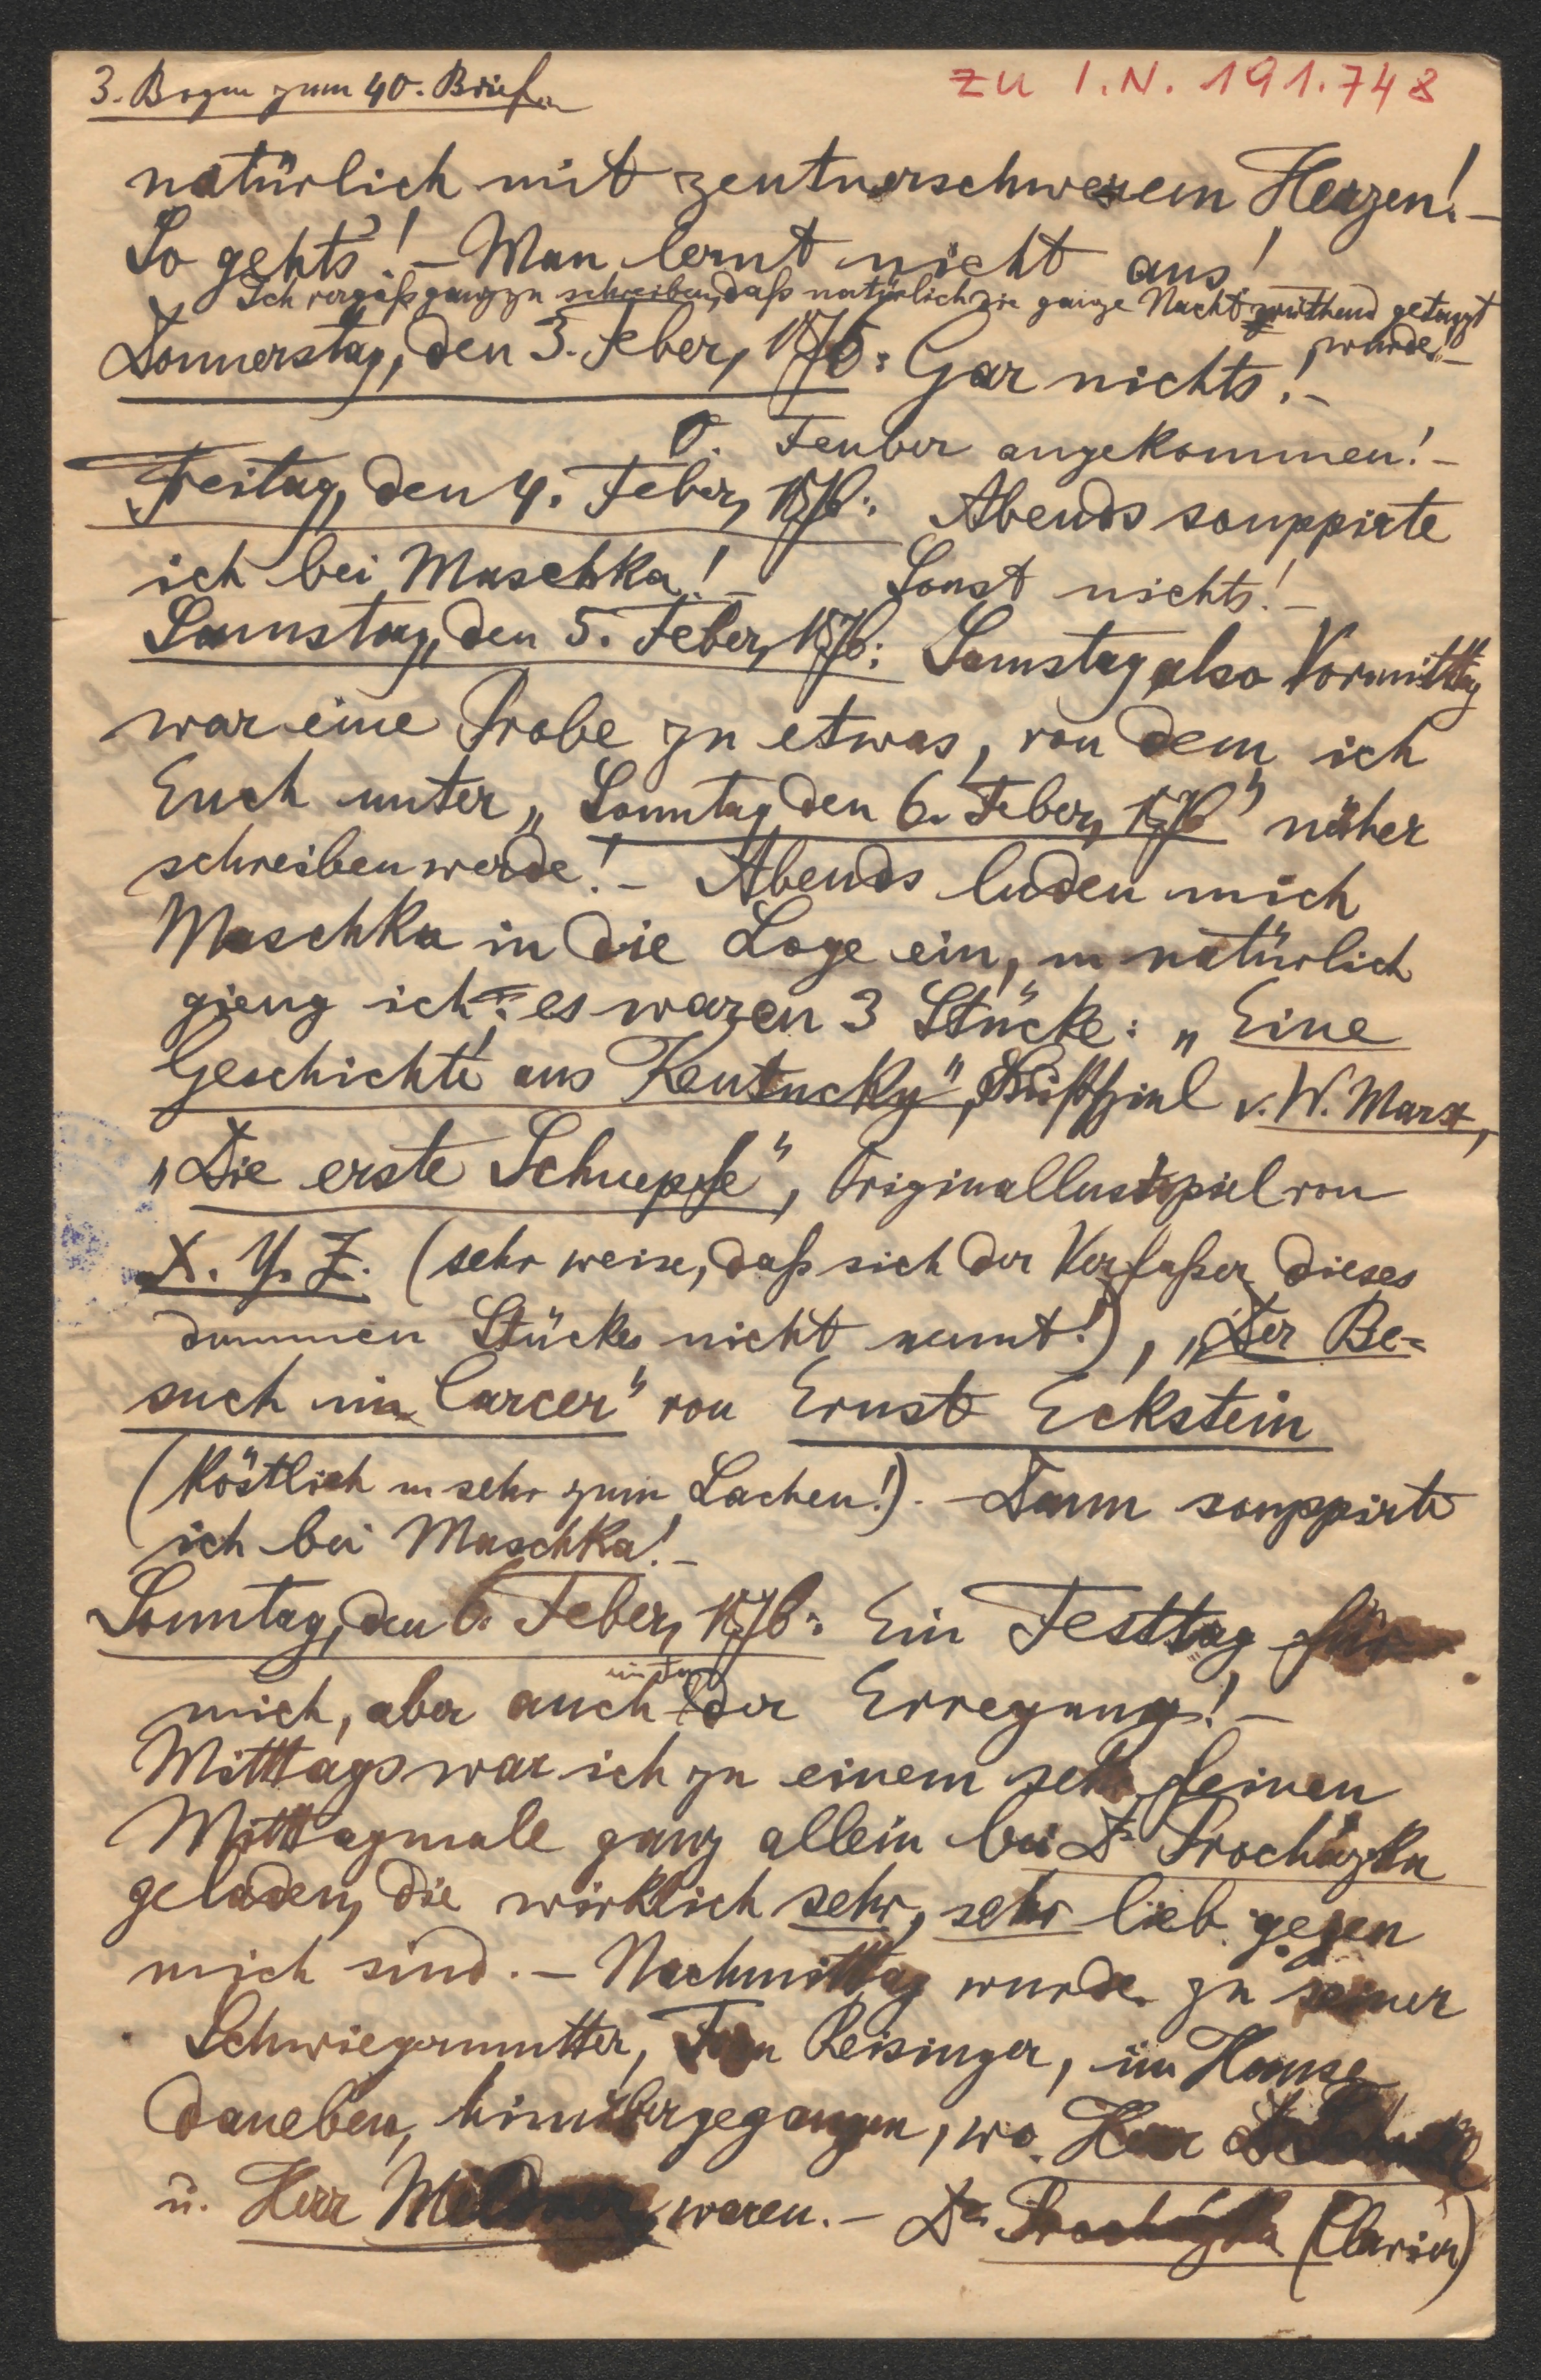 3. Bogen zum 40. Briefe
ZU I.N. 191.748
natürlich mit zentnerschwerem Herzen! –
So gehts! – Man lernt nicht aus!
Ich vergaß ganz zu schreiben, daß natürlich die ganze Nacht wüthend getanzt
wurde! –
Donnerstag, den 3. Feber, 1876: Gar nichts! –
O. Teuber angekommen! –
Freitag, den 4. Feber, 1876: Abends souppirte
ich bei Maschka! – Sonst nichts! –
Samstag, den 5. Feber, 1876: Samstag also Vormittag
war eine Probe zu etwas, von dem ich
Euch unter „Sonntag den 6. Feber, 1876" näher
schreiben werde! – Abends luden mich
Maschka in die Loge ein, u natürlich
gieng ich; es waren 3 Stücke: „Eine
Geschichte aus Kentucky", Lustspiel v. W. Marx,
„Die erste Schnepfe", Originallustspiel von
X. Y. Z. (sehr weise, daß sich der Verfaßer dieses
dummen Stückes nicht nennt!), „Der Be=
such im Carcer" von Ernst Eckstein
(köstlich u sehr zum Lachen!). – Dann souppirte
ich bei Maschka! –
Sonntag, den 6. Feber, 1876: Ein Festtag für
mich, aber auch der Erregung! –
Mittags war ich zu einem sehr feinen
Mittagmale ganz allein bei Dr Procházka
geladen, die wirklich sehr, sehr lieb gegen
mich sind. – Nachmittag wurde zu seiner
Schwiegermutter, Frau Reisinger, im Hause
daneben, hinübergegangen, wo Herr
u. Herr Mildner waren. – Dr Procházka (Clavier)